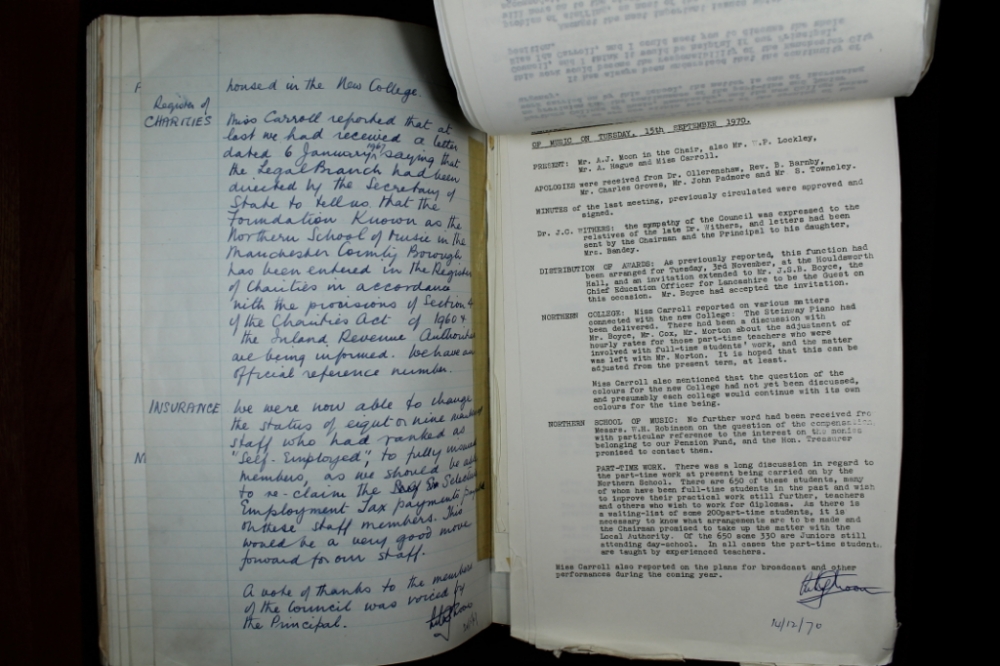 housed in the New College.
Register of
CHARITIES
Miss Carroll reported that at
last we had received a letter
dated 6 January 1967 saying that
the Legal Branch had been
directed by the Secretary of
State to tell us that the
Foundation Known as the
Northern School of Music in the
Manchester County Borough
has been entered in the Register
of Charities in accordance
with the provisions of Section 4
of the Charities Act of 1960 &
the Inland Revenue Authorities
are being informed. We have an
official reference number.
INSURANCE
We were now able to change
the status of eight or nine
staff who had ranked as
"Self-Employed", to fully insured
members, as we should be able
to re-claim the Selective
Employment Tax payments
on these staff members. This
would be a very good move
forward for our staff.
A vote of thanks to the members
of the Council was voiced by
the Principal.
OF MUSIC ON TUESDAY, 15th SEPTEMBER 1970.
PRESENT: Mr. A.J. Moon in the Chair, also Mr. W.P. Lockley,
Mr. A. Hague and Miss Carroll.
APOLOGIES were received from Dr. Ollerenshaw, Rev. B. Barnby,
Mr. Charles Groves, Mr. John Padmore and Mr S. Towneley.
MINUTES of the last meeting, previously circulated were approved and
signed.
Dr. J.C. WITHERS: the sympathy of the Council was expressed to the
relatives of the late Dr. Withers, and letters had been
sent by the Chairman and the Principal to his daughter,
Mrs. Bandey.
DISTRIBUTION OF AWARDS: As previously reported, this function had
been arranged for Tuesday, 3rd November, at the Houldsworth
Hall, and an invitation extended to Mr. J.S.B. Boyce, the
Chief Education Officer for Lancashire to be the Guest on
this occasion. Mr. Boyce had accepted the invitation.
NORTHERN COLLEGE: Miss Carroll reported on various matters
connected with the new College: The Steinway Piano had
been delivered. There had been a discussion with
Mr. Boyce, Mr. Cox, Mr. Morton about the adjustment of
hourly rates for those part-time teachers who were
involved with full-time students' work, and the matter
was left with Mr. Morton. It is hoped that this can be
adjusted from the present term, at least.
Miss Carroll also mentioned that the question of the
colours for the new College had not yet been discussed,
and presumably each college would continue with its own
colours for the time being.
NORTHERN SCHOOL OF MUSIC: No further word had been received from
Messrs. W.H. Robinson on the question of the compensation,
with particular reference to the interest on the monies
belonging to our Pension Fund, and the Hon. Treasurer
promised to contact them.
PART-TIME WORK. There was a long discussion in regard to
the part-time work at present being carried on by the
Northern School. There are 650 of these students, many
of whom have been full-time students in the past and wish
to improve their practical work still further, teachers
and others who wish to work for diplomas. As there is
a waiting-list of some 200part-time students, it is
necessary to know what arrangements are to be made and
the Chairman promised to take up the matter with the
Local Authority. Of the 650 some 330 are Juniors still
attending day-school. In all cases the part-time students
are taught by experienced teachers.
Miss Carroll also reported on the plans for broadcast and other
performances during the coming year.
10/12/70